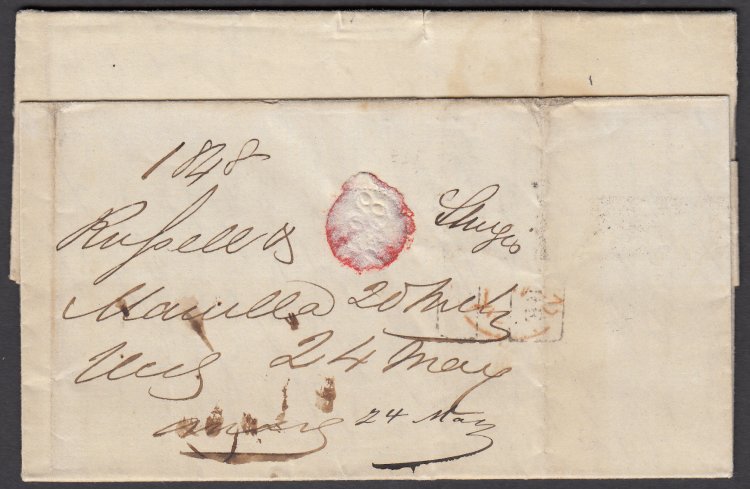 1848
Russell & Sturgis
Manilla 20 Mch
Recd 24 May
24 May